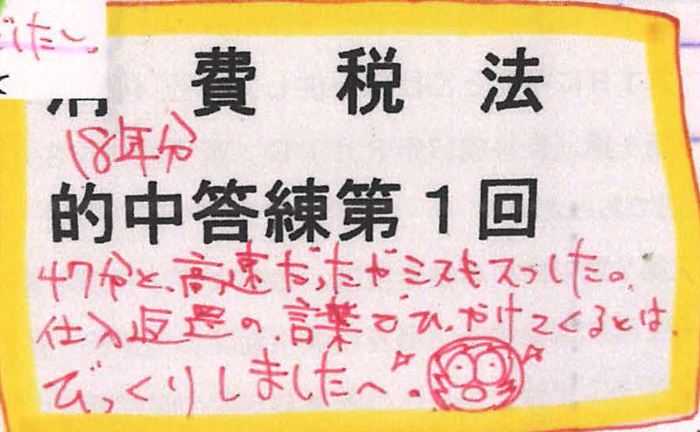 でした。
消費税法
18年分
的中答練第1回
47分と、高速だったがミスもスつした。
仕入返還の、言葉でひっかけてくるとは
びっくりしましたへ。